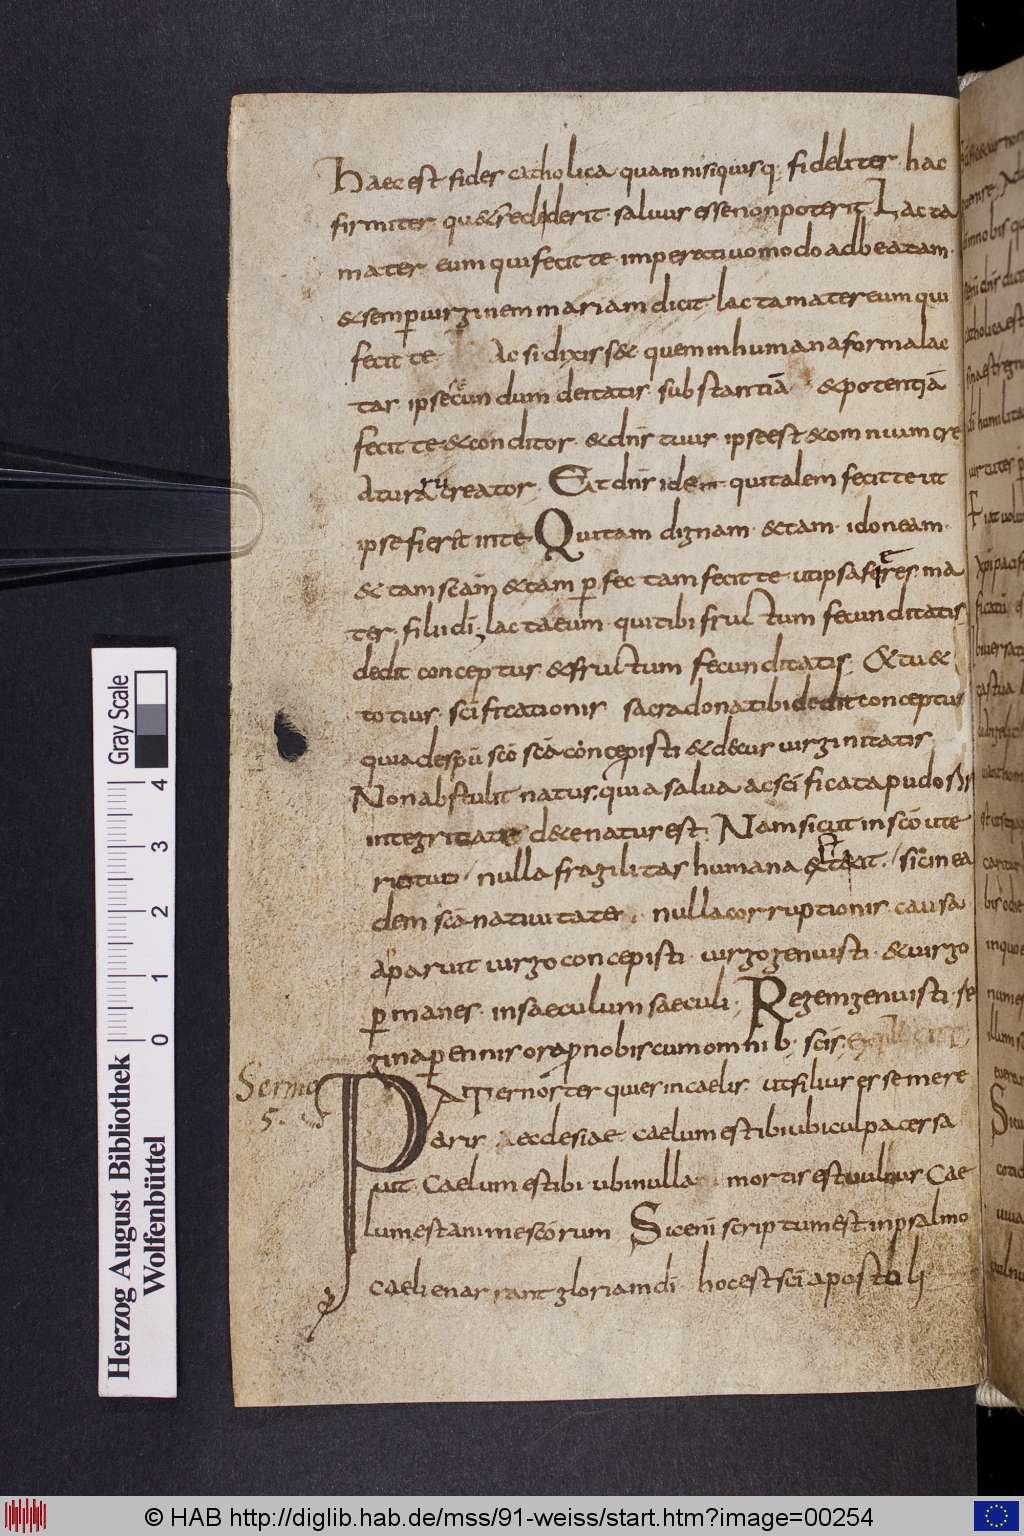 Haec est fides catholica quam nisi quisq; fideliter hac
firmiter qu& crediderit saluus esse non poterit Lacta
mater eum qui fecit te imperatiuo modo ad beatam
& semp uirginem mariam dicit lacta mater eum qui
fecit te Ac si dixiss& quem in humana forma lac
tas ipse secundum deitatis substantiā & potentiā
fecit te & conditor & dns tuus ipse est & omnium cre
atura ru creator Et dns idem qui talem fecit te ut
ipse fierit in te Qui tam dignam & tam idoneam
& tam scām & tam pfectam fecit te ut ipsa fieres ma
ter filii di; lacta eum qui tibi fructum fecunditatis
dedit conceptus & fructum fecunditatis & tu &
totius scificationis sacra dona tibi dedit conceptus
quia de spu sco scā concepisti & decus uirginitatis
Non abstulit natus, quia salua ac scificata pudoris
integritate de te natus est, Nam sicut in scō ute
ri tui nulla fragilitas humana sic in ea
dem scā natiuitate nulla corruptionis causa
aparuit uirgo concepisti uirgo genuisti & uirgo
pmanes in saeculum saeculi, Regem genuisti re
gina pennis ora p nobis cum omnib; scis explicit
Sermo
5.
PATer noster qui es in caelis ut filius esse mere
aris aecclesiae caelum est ibi ubi culpa cessa
uit Caelum est ibi ubi nulla mortis est uulnus Cae
lum est animae scōrum Sic eni scriptum est in psalmo
caeli enarrant gloriam di hoc est sci apostoli
Gray Scale
4
3
2
1
0
Herzog August Bibliothek
Wolfenbüttel
© HAB http://diglib.hab.de/mss/91-weiss/start.htm?image=00254